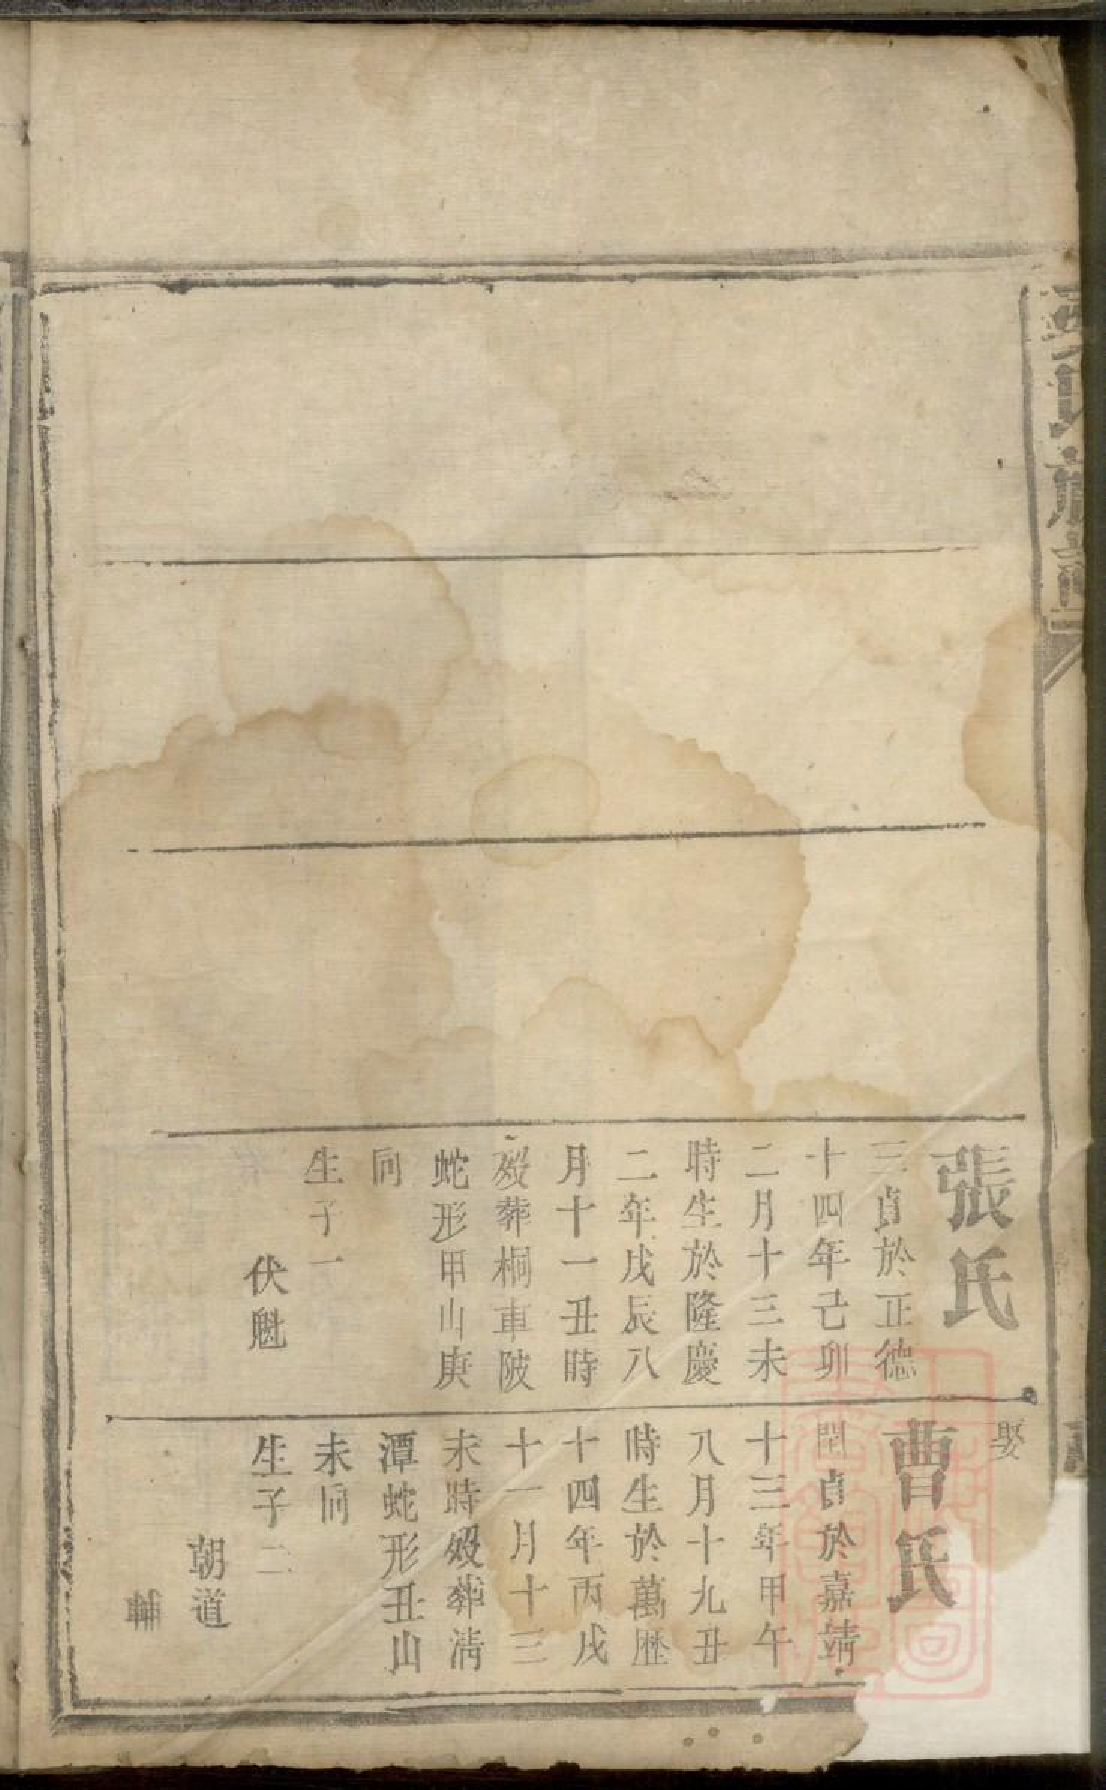 氏族譜
張氏
三貞於正德
十四年己卯
二月十三未
時生於隆慶
二年戊辰八
月十一丑時
歿葬桐車陂
蛇形甲山庚
向
生子一
伏魁
娶
曹氏
貞於嘉靖
十三年甲午
八月十九丑
時生於萬歷
十四年丙戌
十一月十三
未時歿葬清
潭蛇形丑山
未向
生子二
朝道
輔
上海圖
書館藏